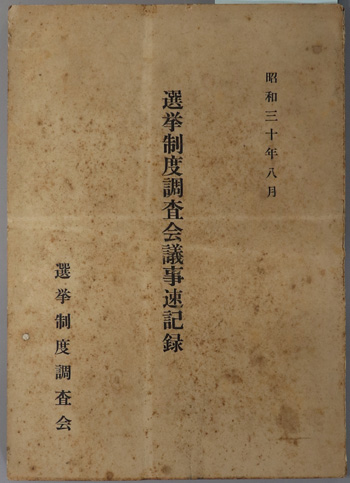 昭和三十年八月
選挙制度調査会議事速記録
選挙制度調査会